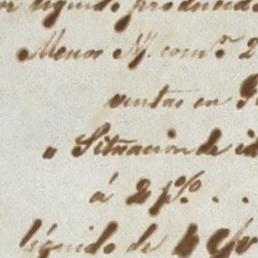 liquido producido
Menos N. com.ⁿ 2
ventas en
" Situacion de id
á 2 p%. . .
líquido de 4 c/v